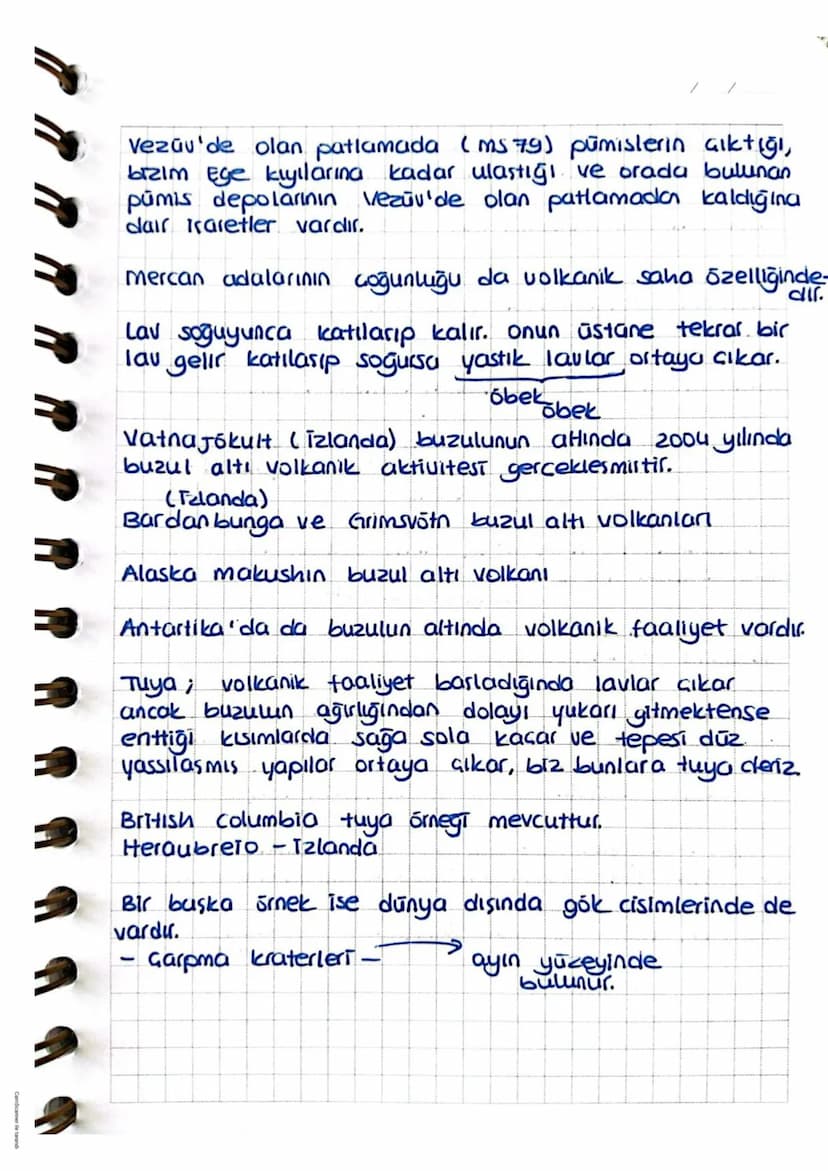 / /
Vezüv'de olan patlamada (MS 79) pümislerin çıktığı,
bizim Ege kıyılarına kadar ulaştığı ve orada bulunan
pümis depolarının Vezüv'de olan patlamadan kaldığına
dair işaretler vardır.
Mercan adalarının çoğunluğu da volkanik saha özelliğinde-
dir.
Lav soğuyunca katılaşıp kalır. onun üstüne tekrar bir
lav gelir katılaşıp soğursa yastık lavlar ortaya çıkar.
öbek
öbek
Vatnajökult (İzlanda) buzulunun altında 2004 yılında
buzul altı volkanik aktivitesi gerçekleşmiştir.
(İzlanda)
Bardanbunga ve Grimsvötn buzul altı volkanları
Alaska makushin buzul altı volkanı
Antartika'da da buzulun altında volkanik faaliyet vardır.
Tuya; volkanik faaliyet başladığında lavlar çıkar
ancak buzulun ağırlığından dolayı yukarı gitmektense
erittiği kısımlarda sağa sola kaçar ve tepesi düz
yassılaşmış yapılar ortaya çıkar, biz bunlara tuya deriz.
British columbia tuya örneği mevcuttur.
Heraubreio - İzlanda
Bir başka örnek ise dünya dışında gök cisimlerinde de
vardır.
- Çarpma kraterleri - → ayın yüzeyinde
bulunur.
CamScanner ile tarandı